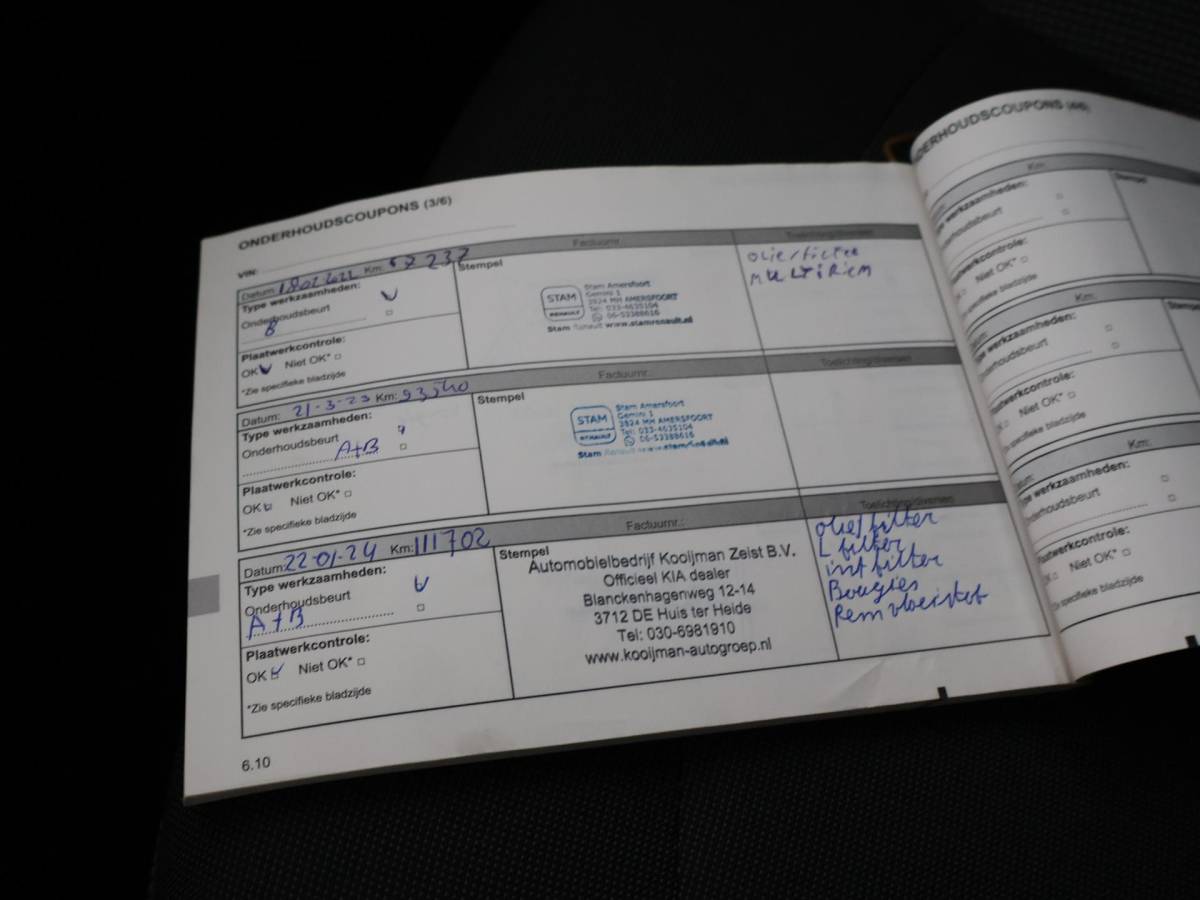 ONDERHOUDSCOUPONS (3/6)
VIN:
Datum: Km: 67 237 Factuurnr. Toelichting/diversen
Type werkzaamheden:
Onderhoudsbeurt
B
Plaatwerkcontrole:
OK Niet OK*
*Zie specifieke bladzijde
Stempel
STAM
RENAULT
Stam Amersfoort
Gemini 1
3824 MH AMERSFOORT
Tel: 033-4635104
06-53388616
Stam Renault www.stamrenault.nl
olie/filter
MULTIRIEM
Datum: 21-3-23 Km: 93540 Factuurnr.: Toelichting/diversen
Type werkzaamheden:
Onderhoudsbeurt
A+B
Plaatwerkcontrole:
OK Niet OK*
*Zie specifieke bladzijde
Stempel
STAM
RENAULT
Stam Amersfoort
Gemini 1
3824 MH AMERSFOORT
Tel: 033-4635104
06-53388616
Stam Renault
Datum: 22-01-24 Km: 111702 Factuurnr.: Toelichting/diversen
Type werkzaamheden:
Onderhoudsbeurt
A+B
Plaatwerkcontrole:
OK Niet OK*
*Zie specifieke bladzijde
Stempel
Automobielbedrijf Kooijman Zeist B.V.
Officieel KIA dealer
Blanckenhagenweg 12-14
3712 DE Huis ter Heide
Tel: 030-6981910
www.kooijman-autogroep.nl
olie/filter
L filter
int filter
Bougies
Remvloeistof
6.10
ONDERHOUDSCOUPONS (4/6)
Km:
werkzaamheden:
Stempel
Niet OK*
specifieke bladzijde
Km:
werkzaamheden:
Niet OK*
specifieke bladzijde
Km:
werkzaamheden:
Niet OK*
specifieke bladzijde